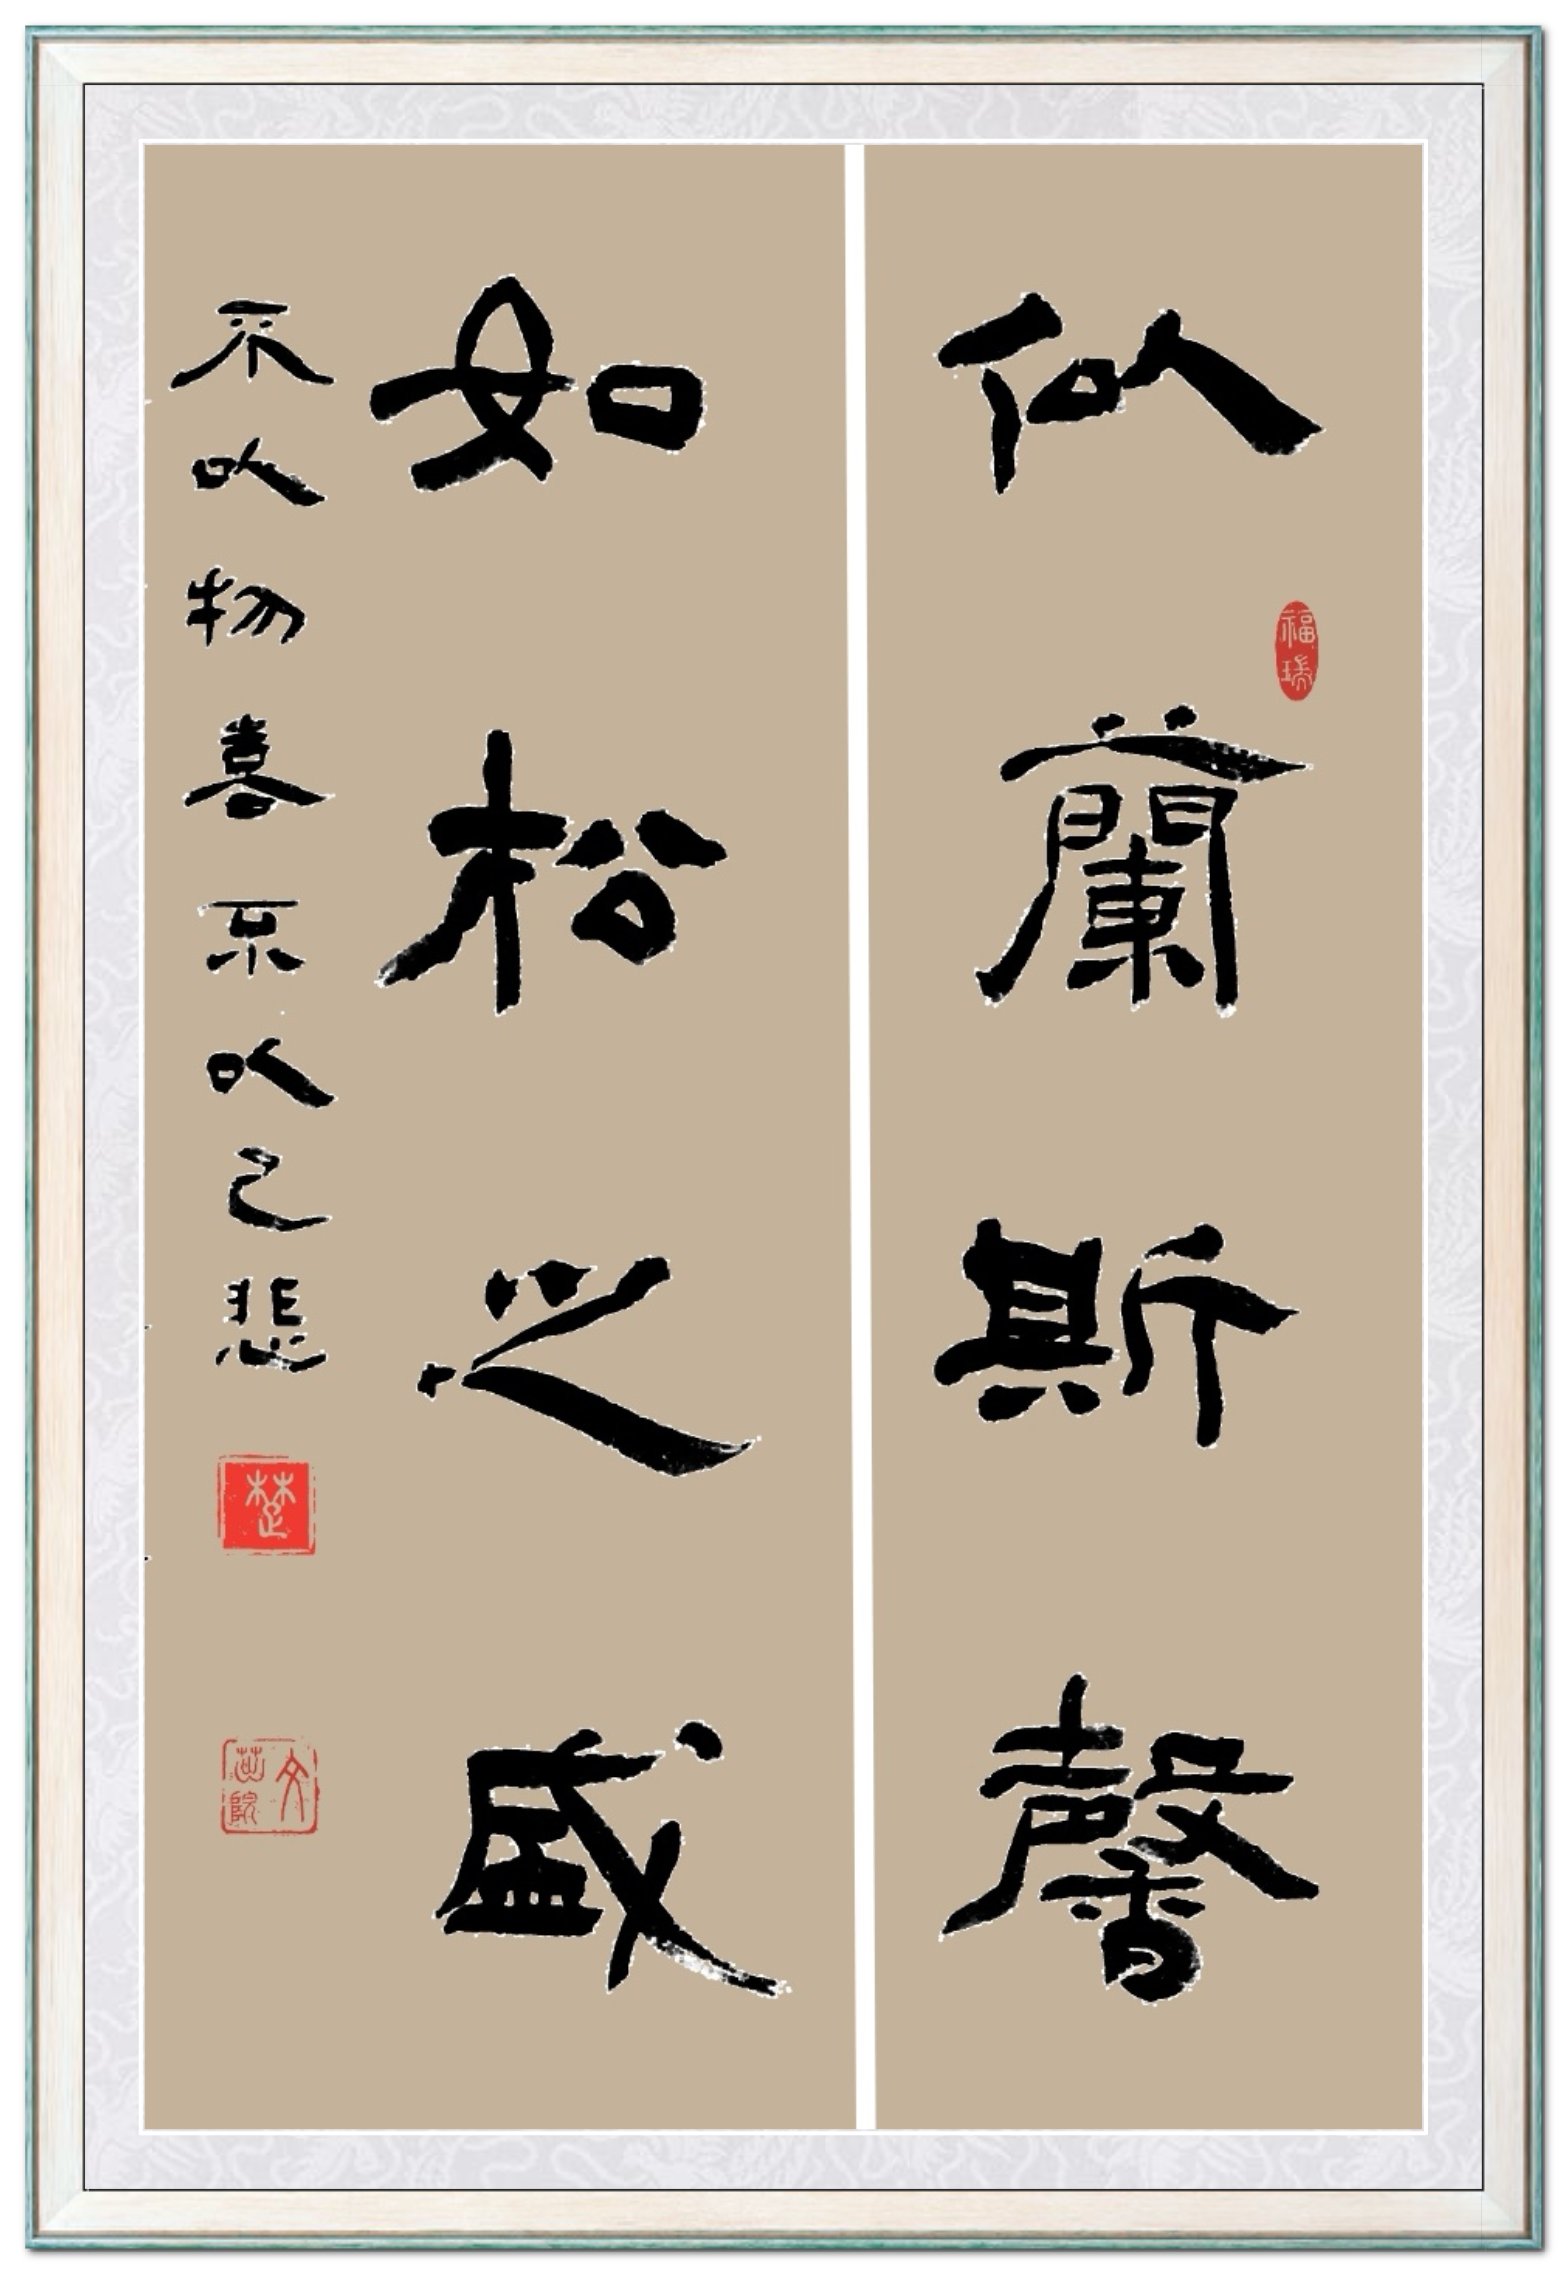 似蘭斯馨
如松之盛
不以物喜不以己悲
福瑞
楚